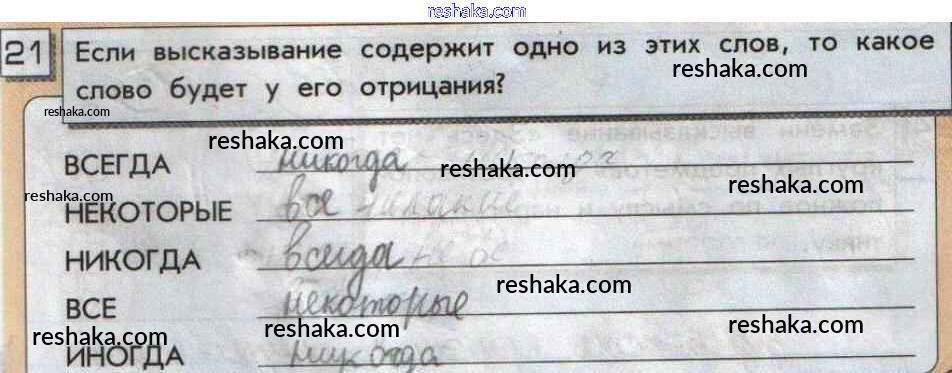 reshaka.com
21 Если высказывание содержит одно из этих слов, то какое
reshaka.com
слово будет у его отрицания?
reshaka.com
reshaka.com
reshaka.com
ВСЕГДА никогда
reshaka.com
reshaka.com
reshaka.com
НЕКОТОРЫЕ все
НИКОГДА всегда
reshaka.com
ВСЕ некоторые
reshaka.com
reshaka.com
reshaka.com
ИНОГДА никогда